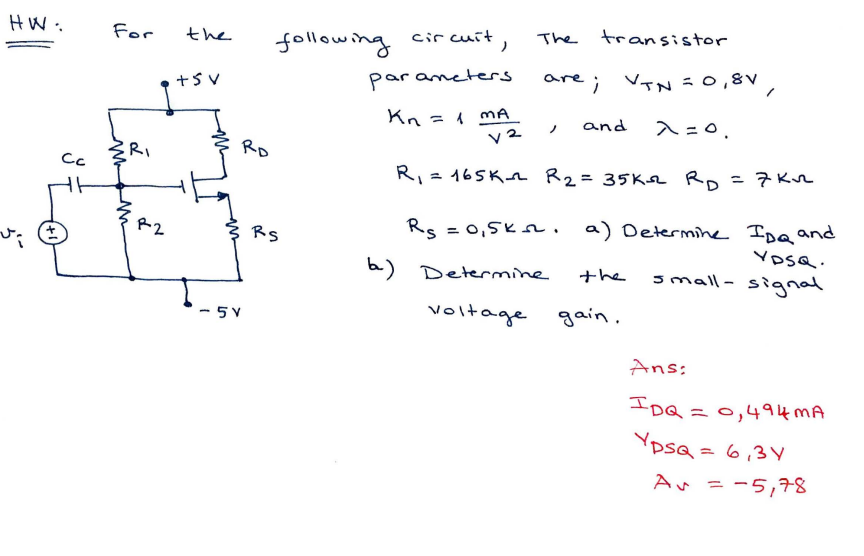 HW: For the following circuit, The transistor
parameters are; VTN = 0,8V,
Kn = 1 mA/V2, and λ = 0.
R1 = 165KΩ R2 = 35KΩ RD = 7KΩ
RS = 0,5KΩ. a) Determine IDQ and
VDSQ.
b) Determine the small-signal
voltage gain.
+5V
R1
RD
Cc
vi
+
-
R2
RS
-5V
Ans:
IDQ = 0,494mA
VDSQ = 6,3V
Av = -5,78